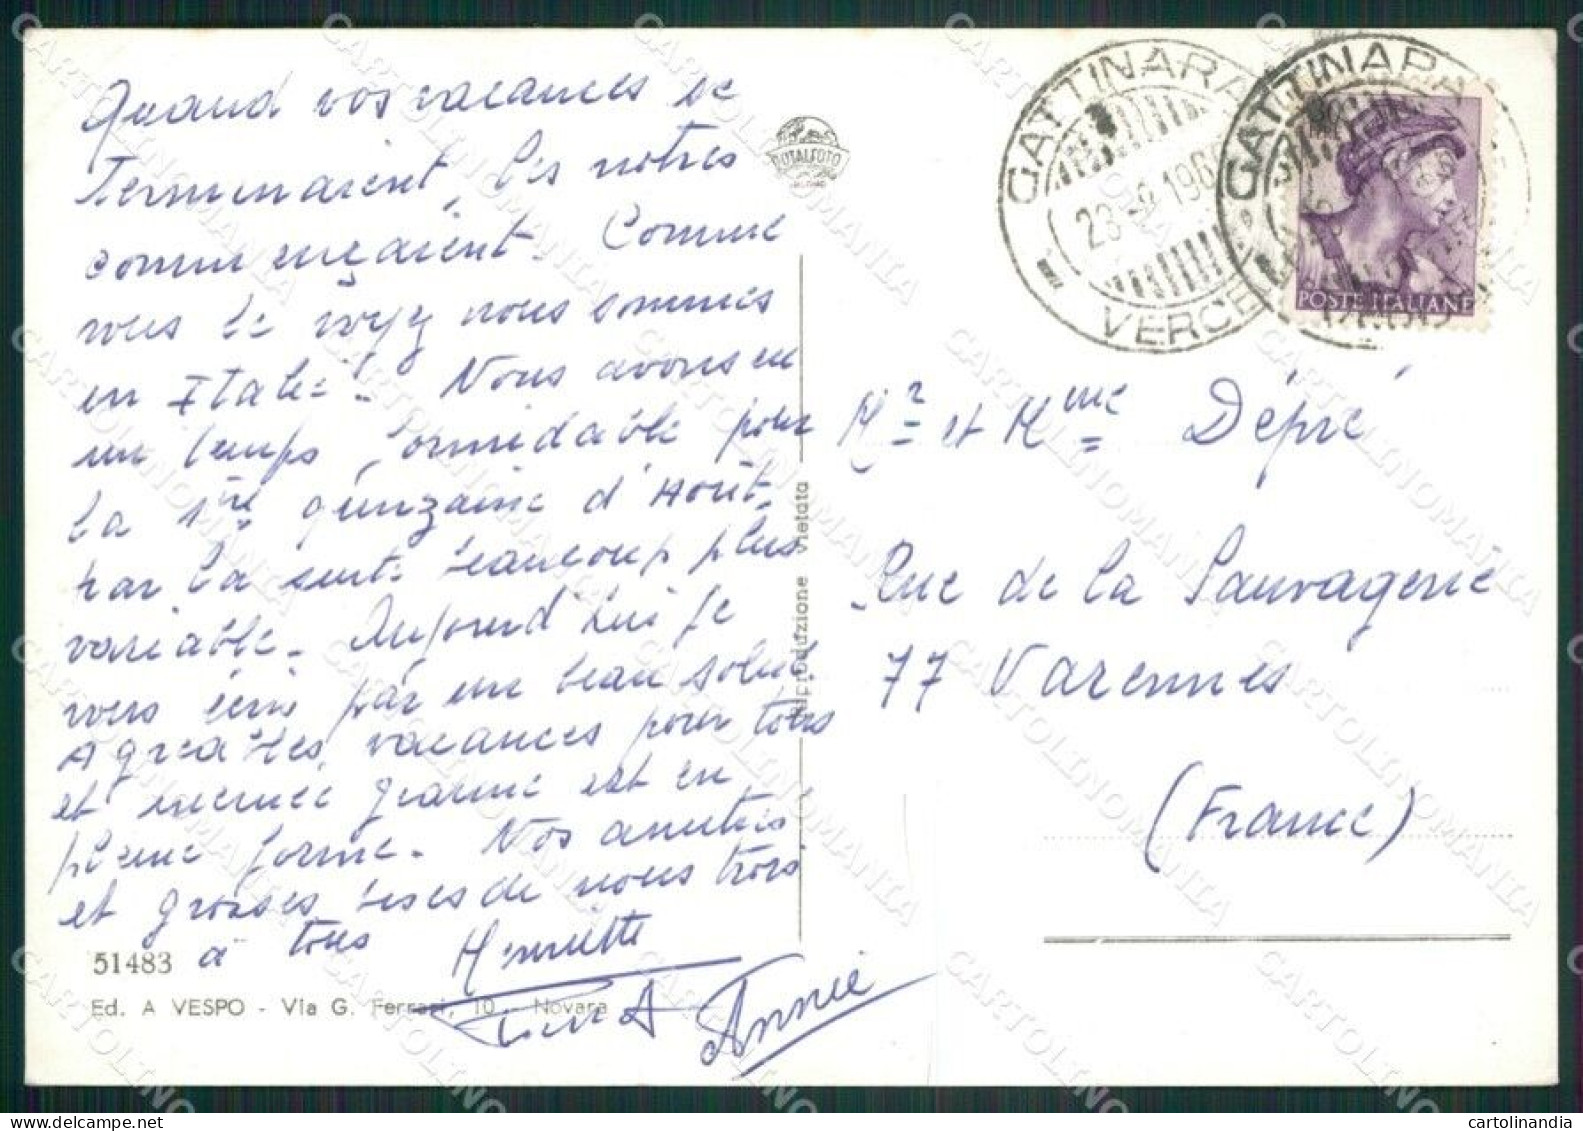 Quand vos vacances se
Terminaient, les notres
commençaient. Comme
vous le voyez nous sommes
en Italie. Nous avons eu
un temps formidable pour
La 1ère quinzaine d'Août.
par la suite beaucoup plus
variable. Aujourd'hui je
vous écris par un beau soleil.
Agréables vacances pour tous
et mémée jeanne est en
pleine forme. Nos amitiés
et grosses bises de nous trois
à tous Henriette
Annie
51483
Ed. A VESPO - Via G. Ferrari, 10 - Novara
Riproduzione vietata
TOTALFOTO
GATTINARA
23-8.196
VERCE
GATTINARA
POSTE ITALIANE
Mr et Mme Dépré
Rue de la Sauvagerie
77 Varennes
(France)
CARTOLINOMANIA
cartolinandia